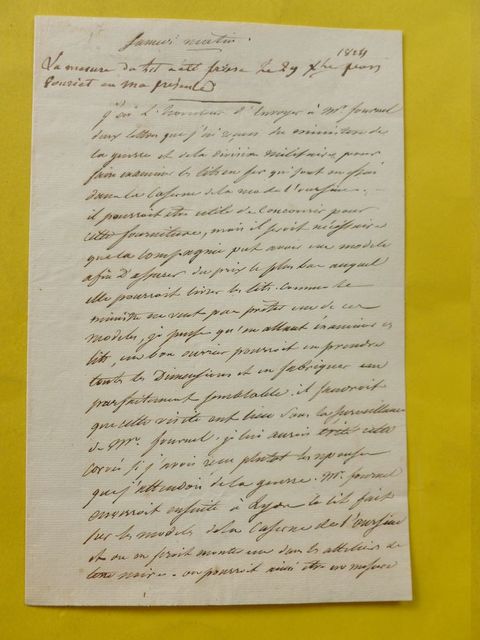 Samedi matin.
La mesure du lit a été prise le 29 Xbre 1824 par
en ma présence
j'ai l'honneur d'envoyer à Mr. fournel
deux lettres que j'ai reçues du ministere de
la guerre et de la division militaire, pour
faire examiner les lits en fer qui sont en essai
dans la Caserne de la rue de l'oursine.
il pourroit être utile de concourir pour
cette fourniture, mais il seroit nécessaire
que la compagnie put avoir un modele
afin d'assurer du prix le plus bas auquel
elle pourroit livrer les lits. comme le
ministre ne veut pas prêter un de ces
modeles, je pense qu'en allant examiner ces
lits, un bon ouvrier pourroit en prendre
toutes les Dimensions et en fabriquer un
parfaitement semblable. il faudroit
que cette visite eut lieu sous la surveillance
de Mr. fournel. je lui aurois évité cette
corvée si j'avois reçu plutot les réponses
que j'attendois de la guerre. Mr. fournel
enverroit ensuite à Lyon le lit fait
sur les modeles de la Caserne de l'oursine
et on en feroit monter un dans les atteliers de
terre noire. on pourroit ainsi être en mesure